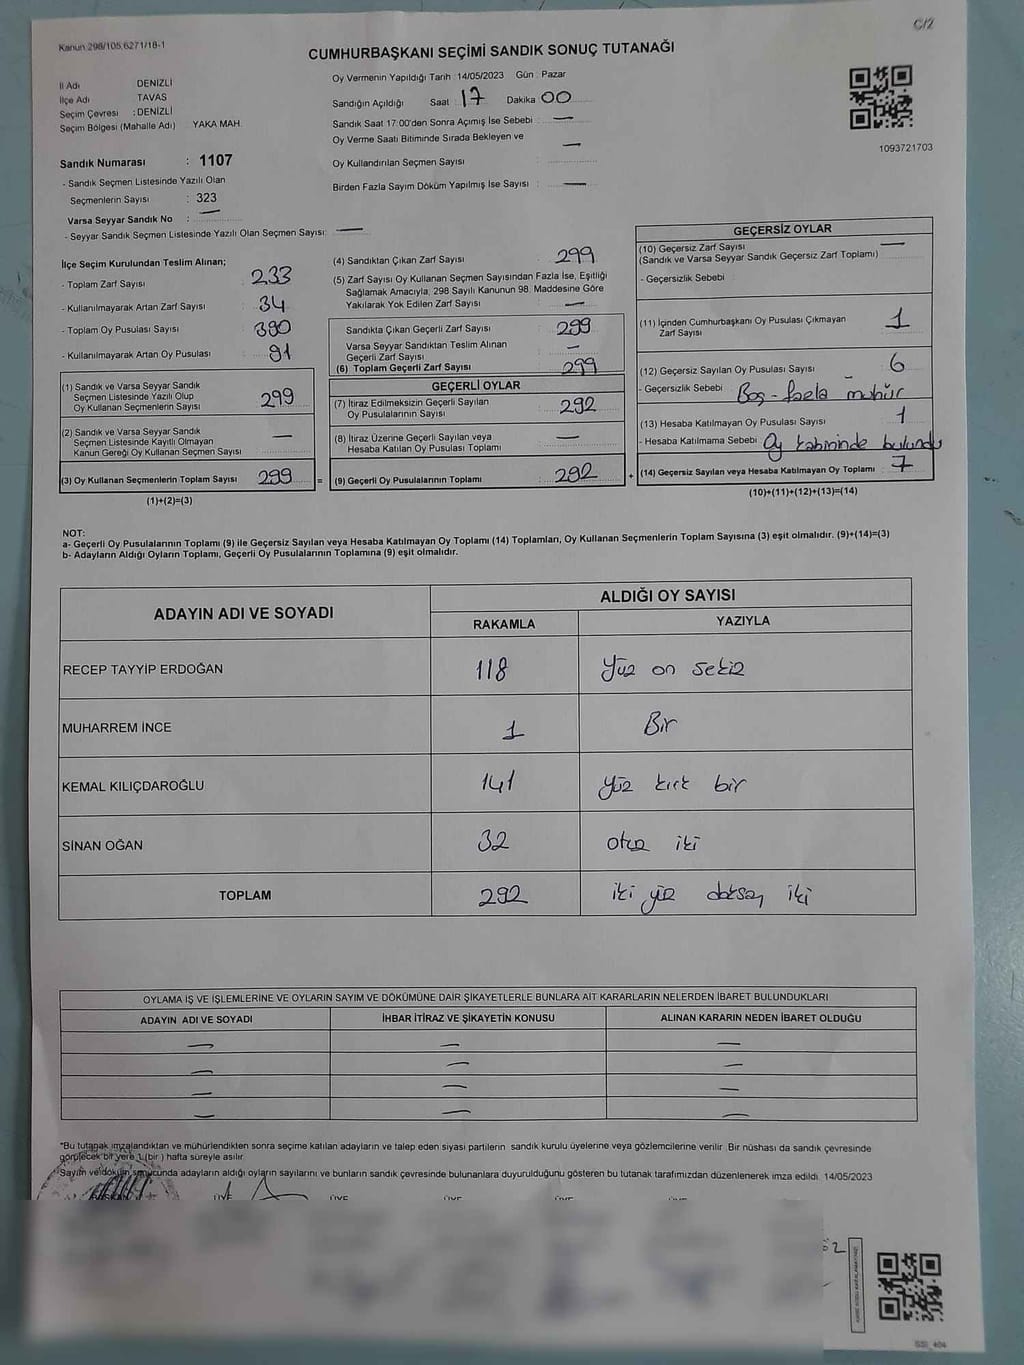 C/2
Kanun 298/105,6271/18-1
CUMHURBAŞKANI SEÇİMİ SANDIK SONUÇ TUTANAĞI
İl Adı DENİZLİ
İlçe Adı TAVAS
Seçim Çevresi : DENİZLİ
Seçim Bölgesi (Mahalle Adı) YAKA MAH.
Oy Vermenin Yapıldığı Tarih : 14/05/2023 Gün : Pazar
Sandığın Açıldığı Saat : 17 Dakika 00
Sandık Saat 17:00'den Sonra Açımış İse Sebebi : —
Oy Verme Saati Bitiminde Sırada Bekleyen ve
Oy Kullandırılan Seçmen Sayısı : —
Birden Fazla Sayım Döküm Yapılmış İse Sayısı : —
1093721703
Sandık Numarası : 1107
- Sandık Seçmen Listesinde Yazılı Olan
Seçmenlerin Sayısı : 323
Varsa Seyyar Sandık No : —
- Seyyar Sandık Seçmen Listesinde Yazılı Olan Seçmen Sayısı: —
İlçe Seçim Kurulundan Teslim Alınan;
- Toplam Zarf Sayısı : 233
- Kullanılmayarak Artan Zarf Sayısı : 34
- Toplam Oy Pusulası Sayısı : 390
- Kullanılmayarak Artan Oy Pusulası : 91
(1) Sandık ve Varsa Seyyar Sandık
Seçmen Listesinde Yazılı Olup
Oy Kullanan Seçmenlerin Sayısı : 299
(2) Sandık ve Varsa Seyyar Sandık
Seçmen Listesinde Kayıtlı Olmayan
Kanun Gereği Oy Kullanan Seçmen Sayısı : —
(3) Oy Kullanan Seçmenlerin Toplam Sayısı : 299 =
(1)+(2)=(3)
(4) Sandıktan Çıkan Zarf Sayısı : 299
(5) Zarf Sayısı Oy Kullanan Seçmen Sayısından Fazla İse, Eşitliği
Sağlamak Amacıyla, 298 Sayılı Kanunun 98. Maddesine Göre
Yakılarak Yok Edilen Zarf Sayısı : —
Sandıkta Çıkan Geçerli Zarf Sayısı : 299
Varsa Seyyar Sandıktan Teslim Alınan
Geçerli Zarf Sayısı : —
(6) Toplam Geçerli Zarf Sayısı : 299
GEÇERLİ OYLAR
(7) İtiraz Edilmeksizin Geçerli Sayılan
Oy Pusulalarının Sayısı : 292
(8) İtiraz Üzerine Geçerli Sayılan veya
Hesaba Katılan Oy Pusulası Toplamı : —
(9) Geçerli Oy Pusulalarının Toplamı : 292 +
GEÇERSİZ OYLAR
(10) Geçersiz Zarf Sayısı : —
(Sandık ve Varsa Seyyar Sandık Geçersiz Zarf Toplamı)
- Geçersizlik Sebebi :
(11) İçinden Cumhurbaşkanı Oy Pusulası Çıkmayan
Zarf Sayısı : 1
(12) Geçersiz Sayılan Oy Pusulası Sayısı : 6
- Geçersizlik Sebebi : Boş - fazla mühür
(13) Hesaba Katılmayan Oy Pusulası Sayısı : 1
- Hesaba Katılmama Sebebi : Oy kabininde bulundu
(14) Geçersiz Sayılan veya Hesaba Katılmayan Oy Toplamı : 7
(10)+(11)+(12)+(13)=(14)
NOT:
a- Geçerli Oy Pusulalarının Toplamı (9) ile Geçersiz Sayılan veya Hesaba Katılmayan Oy Toplamı (14) Toplamları, Oy Kullanan Seçmenlerin Toplam Sayısına (3) eşit olmalıdır. (9)+(14)=(3)
b- Adayların Aldığı Oyların Toplamı, Geçerli Oy Pusulalarının Toplamına (9) eşit olmalıdır.
ADAYIN ADI VE SOYADI ALDIĞI OY SAYISI
RAKAMLA YAZIYLA
RECEP TAYYİP ERDOĞAN 118 Yüz on sekiz
MUHARREM İNCE 1 Bir
KEMAL KILIÇDAROĞLU 141 Yüz kırk bir
SİNAN OĞAN 32 otuz iki
TOPLAM 292 iki yüz doksan iki
OYLAMA İŞ VE İŞLEMLERİNE VE OYLARIN SAYIM VE DÖKÜMÜNE DAİR ŞİKAYETLERLE BUNLARA AİT KARARLARIN NELERDEN İBARET BULUNDUKLARI
ADAYIN ADI VE SOYADI İHBAR İTİRAZ VE ŞİKAYETİN KONUSU ALINAN KARARIN NEDEN İBARET OLDUĞU
— — —
— — —
— — —
— — —
*Bu tutanak imzalandıktan ve mühürlendikten sonra seçime katılan adayların ve talep eden siyasi partilerin sandık kurulu üyelerine veya gözlemcilerine verilir. Bir nüshası da sandık çevresinde
görülecek bir yere 1 (bir ) hafta süreyle asılır.
Sayım ve döküm sonucunda adayların aldığı oyların sayılarını ve bunların sandık çevresinde bulunanlara duyurulduğunu gösteren bu tutanak tarafımızdan düzenlenerek imza edildi. 14/05/2023
BAŞKAN ÜYE ÜYE ÜYE ÜYE ÜYE